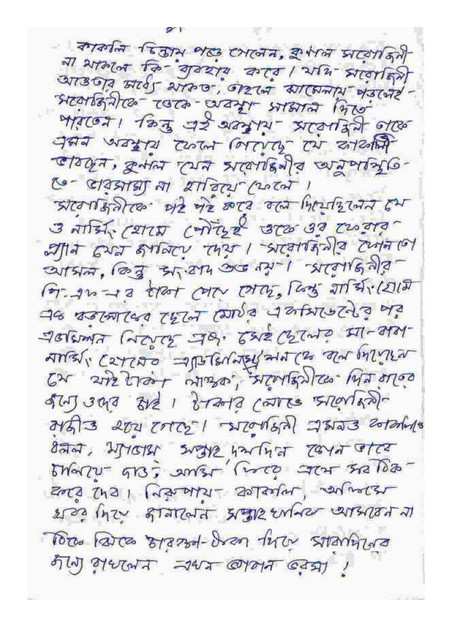 কাকলি চিন্তায় পড়ে গেলেন, কুণাল সরোজিনী
না থাকলে কি ব্যবহার করে। যদি সরোজিনী
আওতার মধ্যে থাকত, তাহলে ঝামেলায় পড়লেই
সরোজিনীকে ডেকে অবস্থা সামাল দিতে
পারতেন। কিন্তু এই অবস্থায় সরোজিনী তাকে
এমন অবস্থায় ফেলে গিয়েছে যে কাকলি
ভাবছেন, কুণাল যেন সরোজিনীর অনুপস্থিতি-
তে ভারসাম্য না হারিয়ে ফেলে।
সরোজিনীকে পই পই করে বলে দিয়েছিলেন যে
ও নার্সিং হোমে পৌঁছেই ওকে ওর ফেরার
প্ল্যান যেন জানিয়ে দেয়। সরোজিনীর ফোন তো
আসল, কিন্তু সংবাদ শুভ নয়। সরোজিনীর
পি.এফ-এর টাকা পেয়ে গেছে, কিন্তু নার্সিং হোমে
এক বড়লোকের ছেলে মোটর একসিডেন্টের পর
এডমিশন নিয়েছে এবং সেই ছেলের মা-বাবা
নার্সিং হোমের এ্যাডমিনিস্ট্রেশনকে বলে দিয়েছেন
যে যাই টাকা লাগুক, সরোজিনীকে দিন রাতের
জন্যে ওদের চাই। টাকার লোভে সরোজিনী
রাজীও হয়ে গেছে। সরোজিনী এমনও কাকলিকে
বলল, ম্যাডাম সপ্তাহ দশদিন কোন ভাবে
চালিয়ে দাও, আমি ফিরে এসে সব ঠিক
করে দেব। নিরুপায় কাকলি, অফিসে
খবর দিয়ে জানালেন সপ্তাহ খানিক আসবেন না
ঠিকে ঝিকে চারশ টাকা দিয়ে সারাদিনের
জন্যে রাখলেন এখন ভগবান ভরসা!